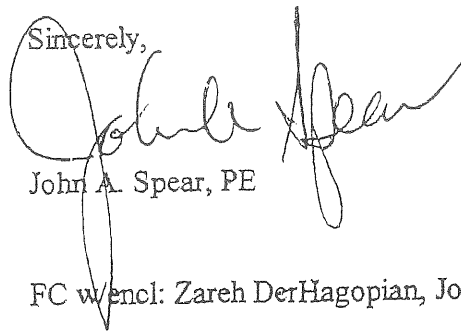 Sincerely,
John A. Spear
John A. Spear, PE
FC w/encl: Zareh DerHagopian, Jo